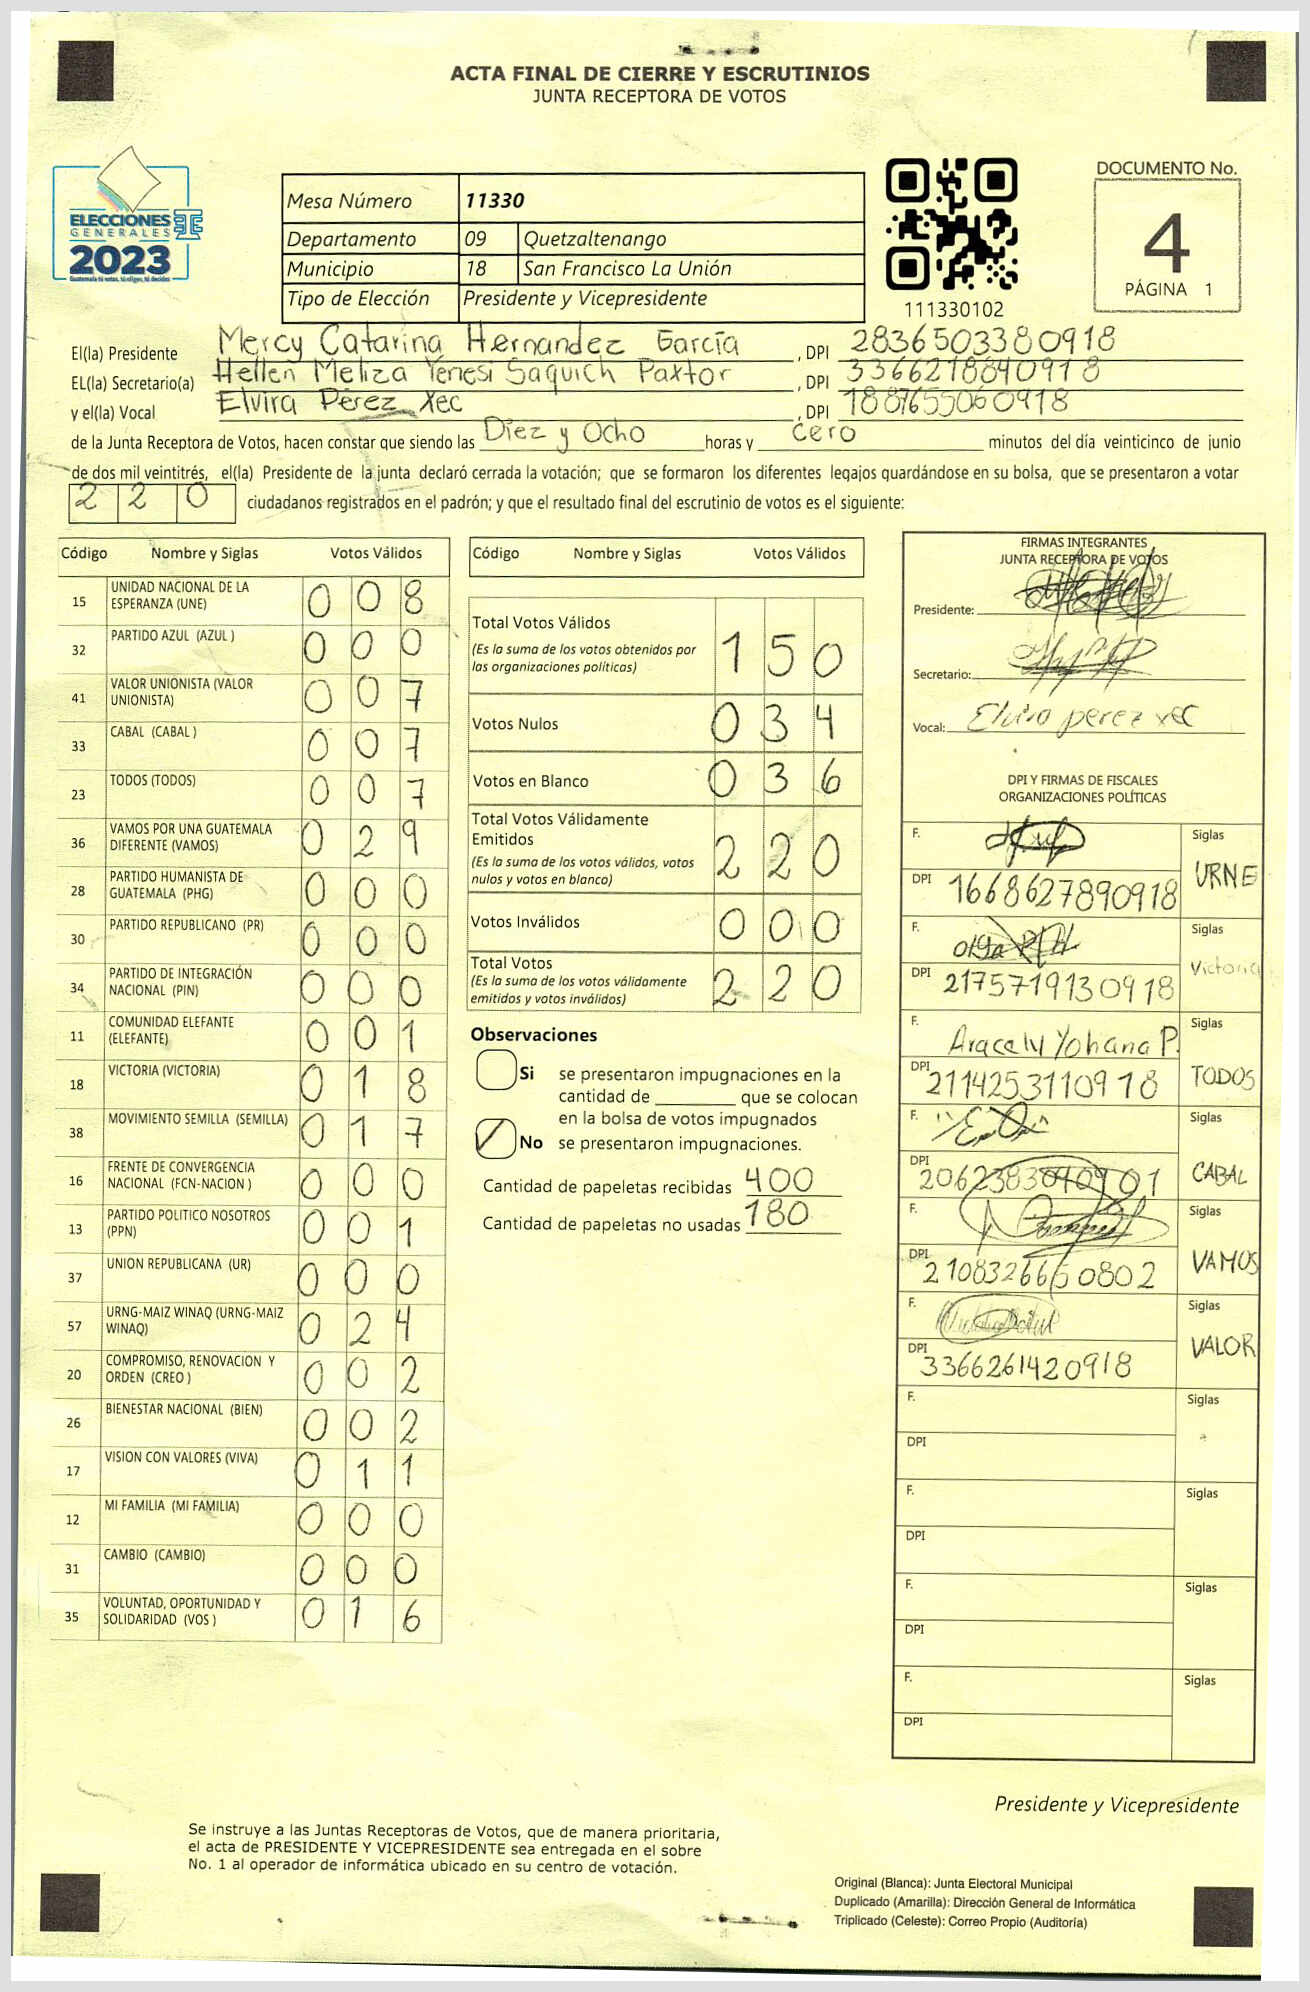 ACTA FINAL DE CIERRE Y ESCRUTINIOS
JUNTA RECEPTORA DE VOTOS
ELECCIONES
GENERALES
2023
Guatemala tú votas, tú eliges, tú decides
Mesa Número 11330
Departamento 09 Quetzaltenango
Municipio 18 San Francisco La Unión
Tipo de Elección Presidente y Vicepresidente
111330102
DOCUMENTO No.
4
PÁGINA 1
El(la) Presidente Mercy Catarina Hernandez García , DPI 2836503380918
EL(la) Secretario(a) Hellen Meliza Yenesi Saquich Paxtor , DPI 3366218840918
y el(la) Vocal Elvira Pérez Xec , DPI 1887655060918
de la Junta Receptora de Votos, hacen constar que siendo las Diez y Ocho horas y cero minutos del día veinticinco de junio
de dos mil veintitrés, el(la) Presidente de la junta declaró cerrada la votación; que se formaron los diferentes legajos guardándose en su bolsa, que se presentaron a votar
220 ciudadanos registrados en el padrón; y que el resultado final del escrutinio de votos es el siguiente:
Código Nombre y Siglas Votos Válidos
15 UNIDAD NACIONAL DE LA ESPERANZA (UNE) 008
32 PARTIDO AZUL (AZUL ) 000
41 VALOR UNIONISTA (VALOR UNIONISTA) 007
33 CABAL (CABAL ) 007
23 TODOS (TODOS) 007
36 VAMOS POR UNA GUATEMALA DIFERENTE (VAMOS) 029
28 PARTIDO HUMANISTA DE GUATEMALA (PHG) 000
30 PARTIDO REPUBLICANO (PR) 000
34 PARTIDO DE INTEGRACIÓN NACIONAL (PIN) 000
11 COMUNIDAD ELEFANTE (ELEFANTE) 001
18 VICTORIA (VICTORIA) 018
38 MOVIMIENTO SEMILLA (SEMILLA) 017
16 FRENTE DE CONVERGENCIA NACIONAL (FCN-NACION ) 000
13 PARTIDO POLITICO NOSOTROS (PPN) 001
37 UNION REPUBLICANA (UR) 000
57 URNG-MAIZ WINAQ (URNG-MAIZ WINAQ) 024
20 COMPROMISO, RENOVACION Y ORDEN (CREO ) 002
26 BIENESTAR NACIONAL (BIEN) 002
17 VISION CON VALORES (VIVA) 011
12 MI FAMILIA (MI FAMILIA) 000
31 CAMBIO (CAMBIO) 000
35 VOLUNTAD, OPORTUNIDAD Y SOLIDARIDAD (VOS ) 016
Código Nombre y Siglas Votos Válidos
Total Votos Válidos 150
(Es la suma de los votos obtenidos por
las organizaciones políticas)
Votos Nulos 034
Votos en Blanco 036
Total Votos Válidamente
Emitidos 220
(Es la suma de los votos válidos, votos
nulos y votos en blanco)
Votos Inválidos 000
Total Votos 220
(Es la suma de los votos válidamente
emitidos y votos inválidos)
Observaciones
Si se presentaron impugnaciones en la
cantidad de que se colocan
en la bolsa de votos impugnados
No se presentaron impugnaciones.
Cantidad de papeletas recibidas 400
Cantidad de papeletas no usadas 180
FIRMAS INTEGRANTES
JUNTA RECEPTORA DE VOTOS
Presidente:
Secretario:
Vocal: Elvira perez xec
DPI Y FIRMAS DE FISCALES
ORGANIZACIONES POLÍTICAS
F. Siglas
DPI 1668627890918 URNE
F. Siglas
DPI 2175719130918 Victoria
F. Aracely Yohana P. Siglas
DPI 2114253110918 TODOS
F. Siglas
DPI 2062383040901 CABAL
F. Siglas
DPI 2108326650802 VAMOS
F. Siglas
DPI 3366261420918 VALOR
F. Siglas
DPI
F. Siglas
DPI
F. Siglas
DPI
F. Siglas
DPI
Presidente y Vicepresidente
Se instruye a las Juntas Receptoras de Votos, que de manera prioritaria,
el acta de PRESIDENTE Y VICEPRESIDENTE sea entregada en el sobre
No. 1 al operador de informática ubicado en su centro de votación.
Original (Blanca): Junta Electoral Municipal
Duplicado (Amarilla): Dirección General de Informática
Triplicado (Celeste): Correo Propio (Auditoría)